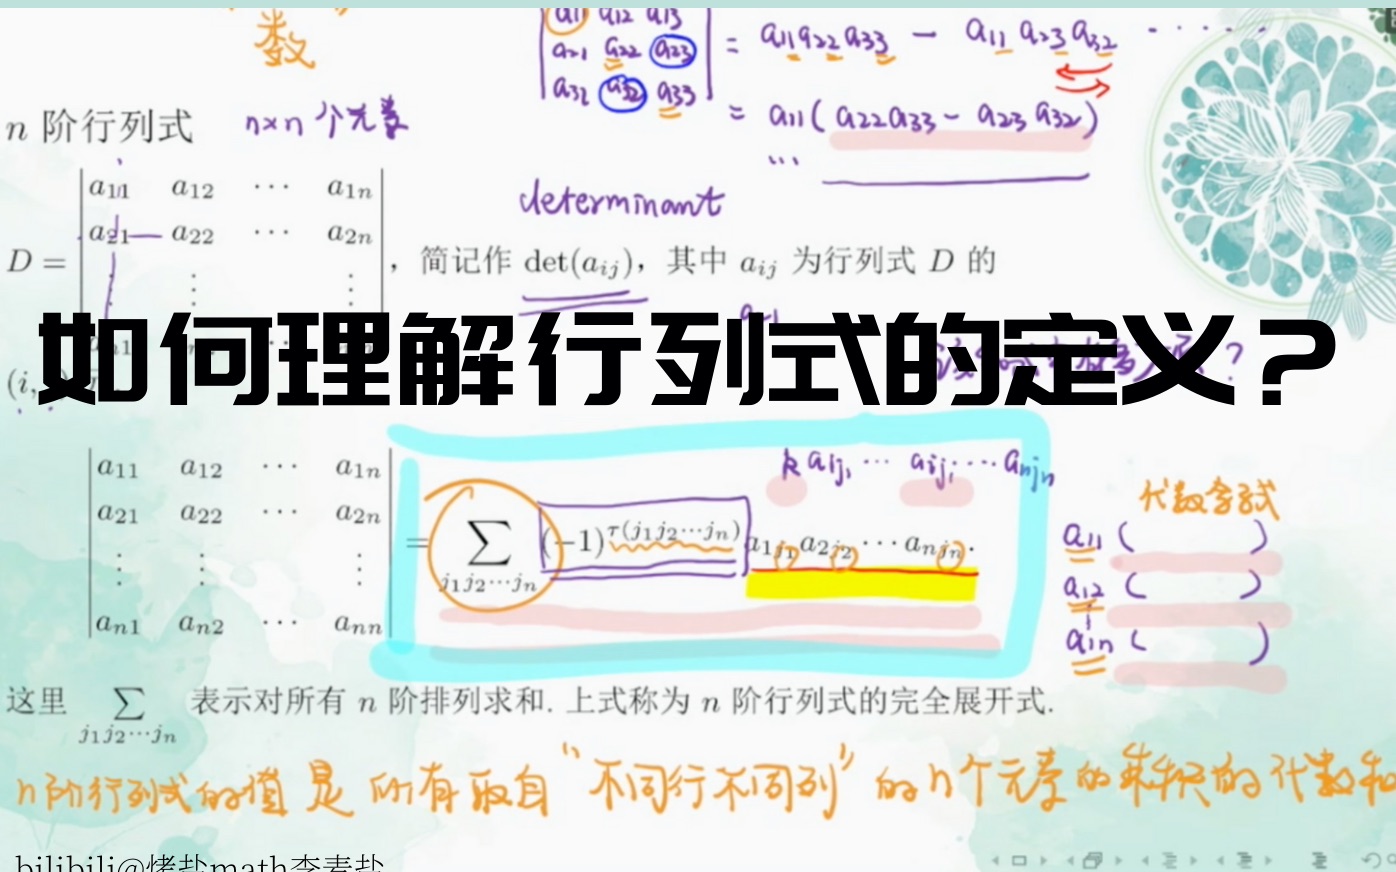 “ ”
数
a11 a12 a13
a21 a22 a23
a32 a32 a33
= a11a22a33 - a11 a23 a32 ······
= a11( a22a33 - a23 a32 )
...
n 阶行列式 n×n 个元素
determinant
a11 a12 ··· a1n
a21 a22 ··· a2n
D =
, 简记作 det(aij), 其中 aij 为行列式 D 的
如何理解行列式的定义?
(i,
k a1j1 ··· aiji ··· anjn
代数余子式
a11 a12 ··· a1n
a21 a22 ··· a2n
⋮ ⋮ ⋮
an1 an2 ··· ann
= ∑ j1j2···jn (-1)^τ(j1j2···jn) a1j1 a2j2 ··· anjn.
a11 ( )
a12 ( )
⋮
a1n ( )
这里 ∑ j1j2···jn 表示对所有 n 阶排列求和. 上式称为 n 阶行列式的完全展开式.
n阶行列式的值是 所有取自“不同行不同列”的n个元素的乘积的代数和
bilibili@烤盐math李素盐